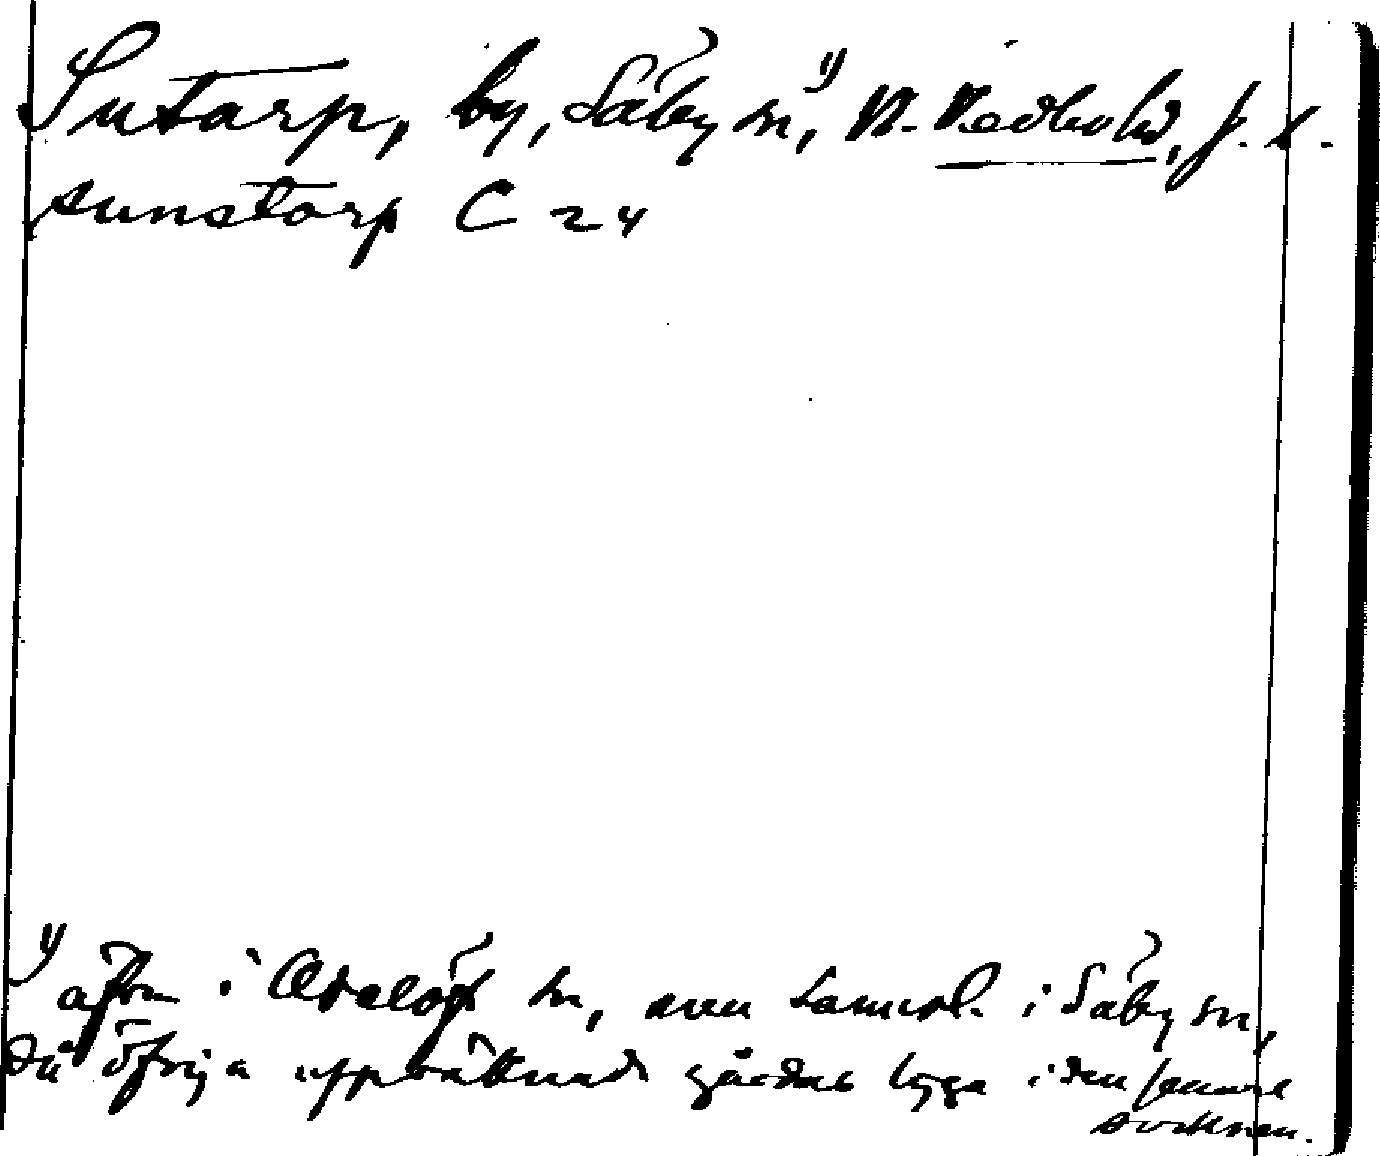 Sutarp, by, Säby sn,1) N. Vedbo hd, J. l.
sunstorp C 24
1) äfven i Adelöf sn, men samml. i Säby sn,
då öfriga uppräknade gårdar ligga i den senare
socknen.